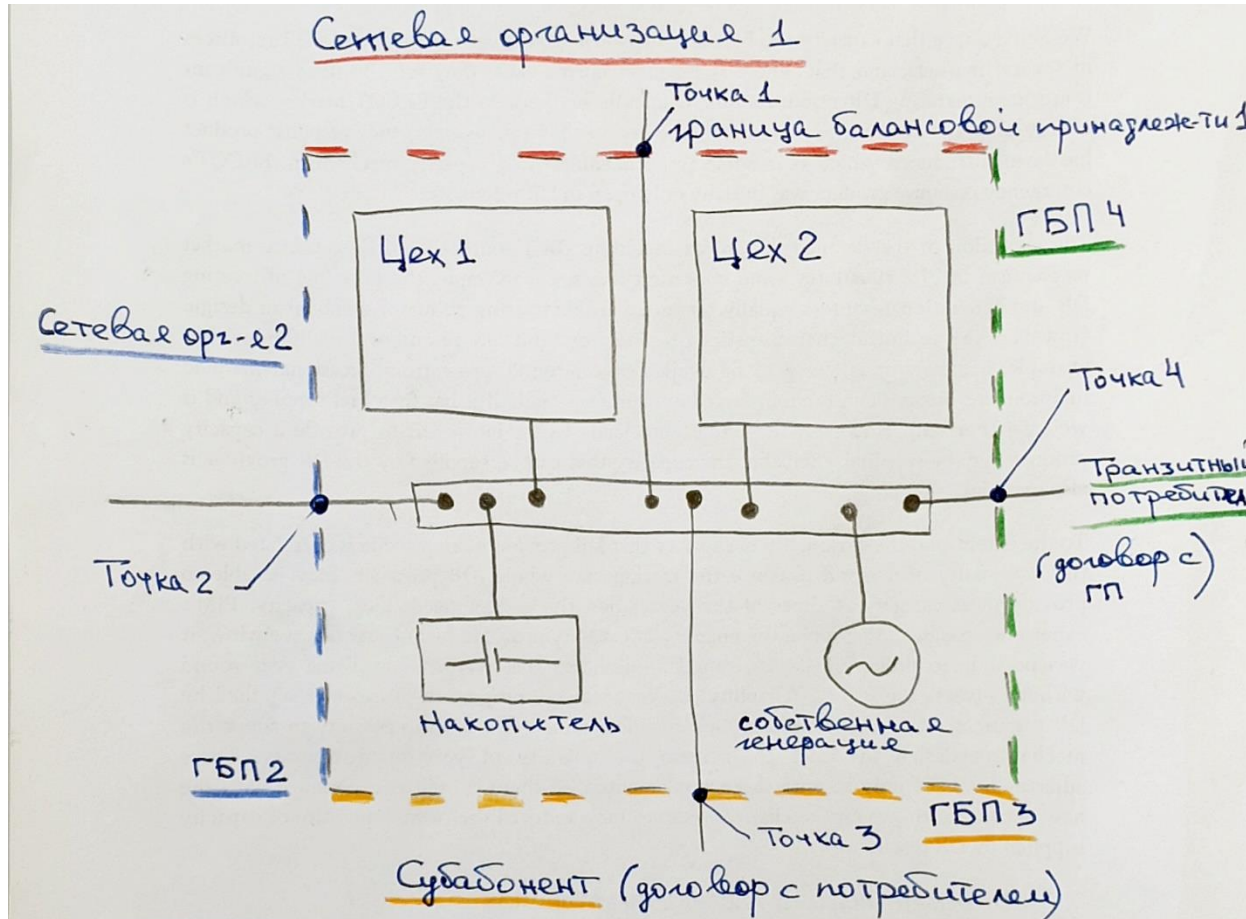 Сетевая организация 1
Точка 1
граница балансовой принадлеж-ти 1
Цех 1
Цех 2
ГБП 4
Сетевая орг-я 2
Точка 4
Транзитный
потребитель
(договор с)
ГП
Точка 2
Накопитель
собственная
генерация
ГБП 2
ГБП 3
Точка 3
Субабонент (договор с потребителем)